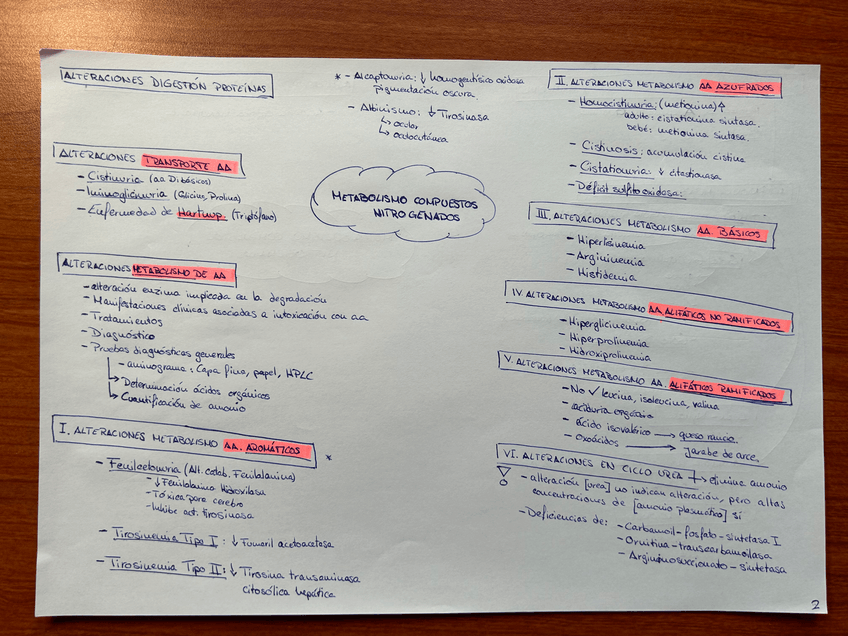 ALTERACIONES DIGESTIÓN PROTEÍNAS
ALTERACIONES TRANSPORTE AA
- Cistinuria (aa Dibásicos)
- Iminoglicinuria (Glicina, Prolina)
- Enfermedad de Hartnup. (Triptófano)
ALTERACIONES METABOLISMO DE AA
- alteración enzima implicada en la degradación
- Manifestaciones clínicas asociadas a intoxicación con aa
- Tratamientos
- Diagnóstico
- Pruebas diagnósticas generales
- aminograma: Capa fina, papel, HPLC
→ Determinación ácidos orgánicos
→ Cuantificación de amonio
I. ALTERACIONES METABOLISMO AA. AROMÁTICOS *
- Fenilcetonuria (Alt. catab. Fenilalanina)
- ↓ Fenilalanina Hidroxilasa
- Tóxica para cerebro
- Inhibe act. tirosinasa
- Tirosinemia Tipo I: ↓ Fumaril acetoacetasa
- Tirosinemia Tipo II: ↓ Tirosina transaminasa
citosólica hepática
* - Alcaptonuria: ↓ homogentísico oxidasa
pigmentación oscura.
- Albinismo: ↓ Tirosinasa
↳ ocular
↳ oculocutánea
METABOLISMO COMPUESTOS
NITROGENADOS
II. ALTERACIONES METABOLISMO AA AZUFRADOS
- Homocistinuria: (metionina) ↑
adulto: cistationina sintasa.
bebé: metionina sintasa.
- Cistinosis: acumulación cistina
- Cistationuria: ↓ citastionasa
- Déficit sulfito oxidasa:
III. ALTERACIONES METABOLISMO AA BÁSICOS
- Hiperlisinemia
- Argininemia
- Histidemia
IV. ALTERACIONES METABOLISMO AA ALIFÁTICOS NO RAMIFICADOS
- Hiperglicinemia
- Hiperprolinemia
- Hidroxiprolinemia
V. ALTERACIONES METABOLISMO AA. ALIFÁTICOS RAMIFICADOS
- No ✓ leucina, isoleucina, valina
- aciduria orgánica
- ácido isovalérico → queso rancio.
- Oxoácidos → jarabe de arce.
VI. ALTERACIONES EN CICLO UREA → elimina amonio
- alteración [urea] no indican alteración, pero altas
concentraciones de [amonio plasmático] sí
- Deficiencias de: - Carbamoil-fosfato-sintetasa I
- Ornitina-transcarbamoilasa
- Argininosuccinato-sintetasa
2